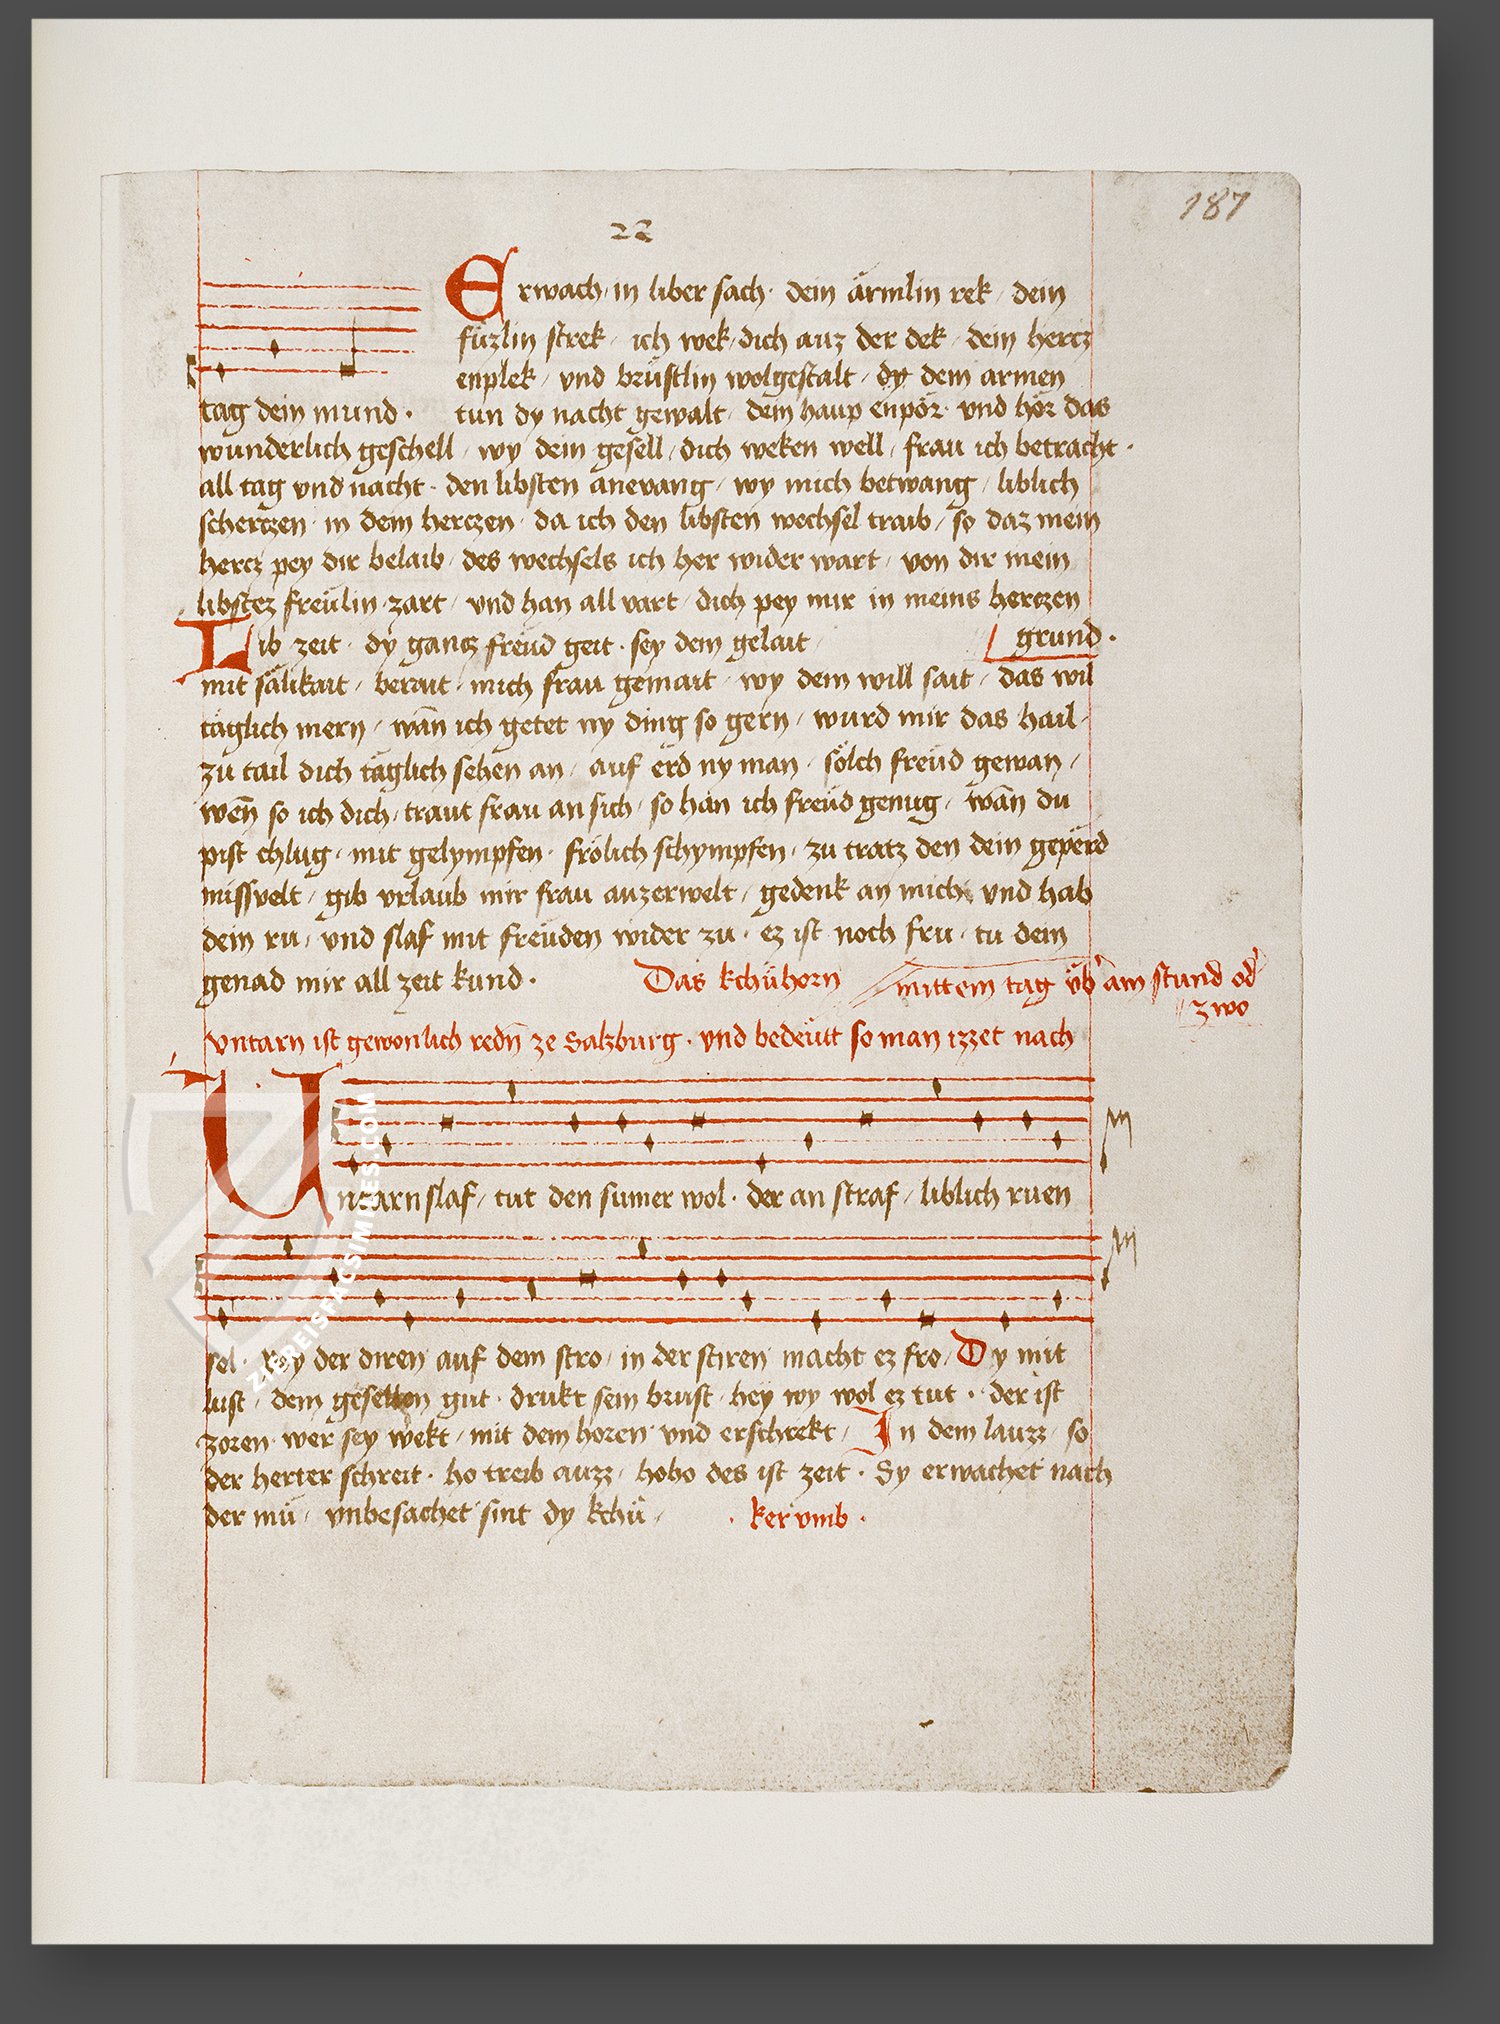 187
22
Erwach in liber sach · dein ärmlin rek / dein
füzlin strek / ich wek / dich auz der dek / dein hercz
enplek / vnd brüstlin wolgestalt / dy dem armen
tag dein mund · tun dy nacht gewalt / dem haup enpör · vnd hör das
wunderlich geschell / wy dein gesell / dich weken well / frau ich betracht ·
all tag vnd nacht · den libsten anevang / wy mich betwang / liblich
scherczen · in dem herczen · da ich den libsten wechsel traib / so daz mein
hercz pey dir belaib / des wechsels ich her wider wart / von dir mein
libstez freülin zart / vnd han all vart / dich pey mir in meins herczen
Lib zeit · dy gancz freüd geit · sey dem gelait / grund ·
mit sälikait / berait / mich frau gemait / wy dem will sait / das wil
täglich mern / wān ich getet ny ding so gern / wurd mir das hail /
zu tail dich täglich sehen an / auf erd ny man / sölch freüd gewan /
wen̄ so ich dich / traut frau an sich / so han ich freüd genug / wān du
pist chlug / mit gelympfen · frölich schympfen / zu tratz den dein geperd
missvelt / gib vrlaub mir frau auzerwelt / gedenk an mich vnd hab
dein ru / vnd slaf mit freüden wider zu · ez ist noch fru / tu dein
genad mir all zeit kund · Das kchühorn mittem tag üb' ain stund od'
zwo
vntarn ist gewonlich redn̄ ze Salzburg · vnd bedeütt so man izzet nach
Untarnslaf / tut den sumer wol · der an straf / liblich ruen
sol · Pey der diren auf dem stro / in der stiren macht ez fro / Dy mit
lust / dem gesellen gut · drukt sein brust · hey wy wol ez tut · der ist
zoren wer sey wekt / mit dem horen vnd erschrekt / In dem lauzz / so
der herter schreit · ho treib auzz / hoho des ist zeit · Sy erwachet nach
der mü / vnbesachet sint dy kchü / · ker vmb ·
ZIEREISFACSIMILES.COM